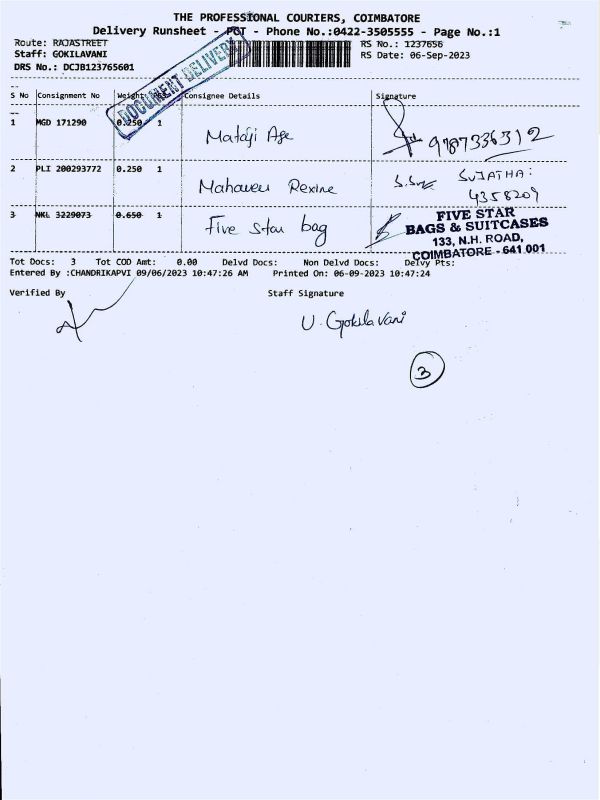 THE PROFESSIONAL COURIERS, COIMBATORE
Delivery Runsheet - PGT - Phone No.:0422-3505555 - Page No.:1
Route: RAJASTREET
RS No.: 1237656
Staff: GOKILAVANI
RS Date: 06-Sep-2023
DRS No.: DCJB123765601
DOCUMENT DELIVERY
S No Consignment No Weight Pcs Consignee Details Signature
1 MGD 171290 0.250 1 Mataji Age 9787336312
2 PLI 200293772 0.250 1 Mahaveer Rexine SUJATHA:
4358209
3 NKL 3229073 0.650 1 Five star bag
FIVE STAR
BAGS & SUITCASES
133, N.H. ROAD,
COIMBATORE - 641 001
Tot Docs: 3 Tot COD Amt: 0.00 Delvd Docs: Non Delvd Docs: Delvy Pts:
Entered By :CHANDRIKAPVI 09/06/2023 10:47:26 AM Printed On: 06-09-2023 10:47:24
Verified By Staff Signature
U. Gokilavani
3